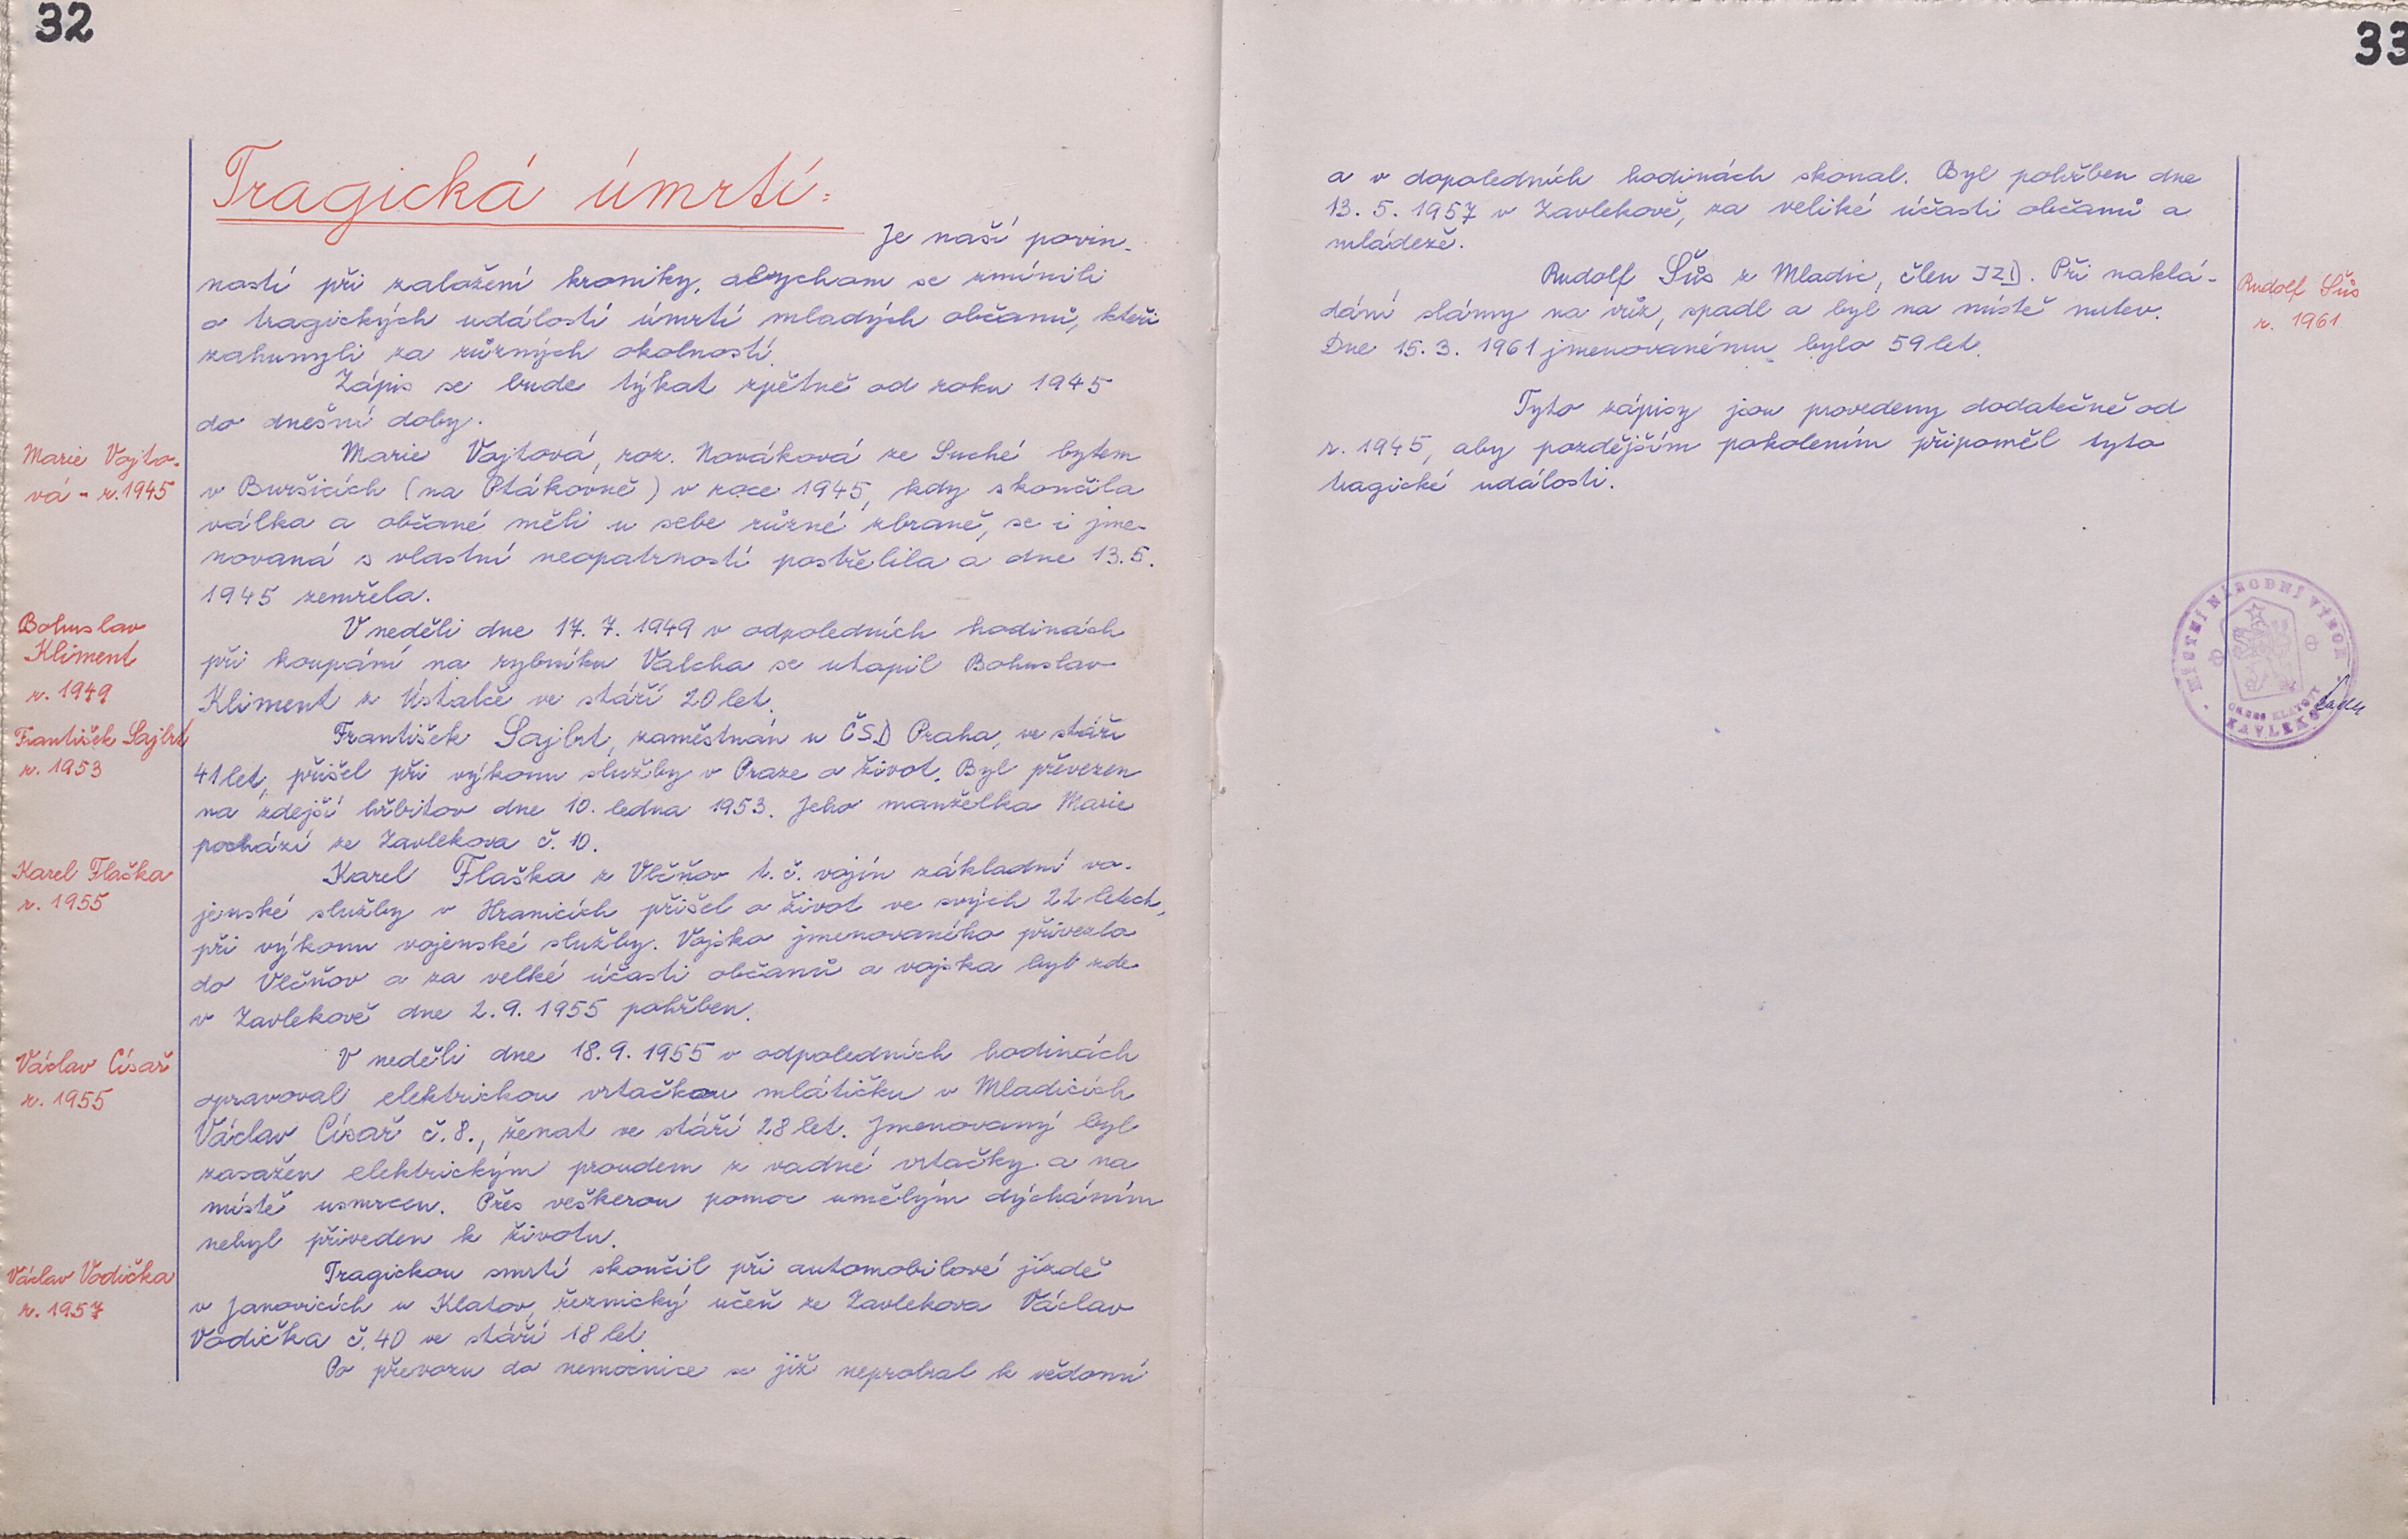 32
Tragická úmrtí:
Je naší povin-
ností při založení kroniky, abychom se zmínili
o tragických událostí úmrtí mladých občanů, kteří
zahynuli za různých okolností.
Zápis se bude týkat zpětně od roku 1945
do dnešní doby.
Marie Vojto-
vá - r. 1945
Marie Vojtová, roz. Nováková ze Suché bytem
v Buršicích (na Ptákovně) v roce 1945, kdy skončila
válka a občané měli u sebe různé zbraně, se i jme-
novaná s vlastní neopatrností postřelila a dne 13.5.
1945 zemřela.
Bohuslav
Kliment
r. 1949
V neděli dne 17. 7. 1949 v odpoledních hodinách
při koupání na rybníku Valcha se utopil Bohuslav
Kliment z Ústalče ve stáří 20 let.
František Sajbrt
r. 1953
František Sajbrt, zaměstnán u ČSD Praha, ve stáří
41 let, přišel při výkonu služby v Praze o život. Byl převezen
na zdejší hřbitov dne 10. ledna 1953. Jeho manželka Marie
pochází ze Zavlekova č. 10.
Karel Flaška
r. 1955
Karel Flaška z Vlčňov t. č. vojín základní vo-
jenské služby v Hranicích přišel o život ve svých 22 letech,
při výkonu vojenské služby. Vojsko jmenovaného přivezlo
do Vlčňov a za velké účasti občanů a vojska byl zde
v Zavlekově dne 2. 9. 1955 pohřben.
Václav Císař
r. 1955
V neděli dne 18. 9. 1955 v odpoledních hodinách
opravoval elektrickou vrtačkou mlátičku v Mladicích
Václav Císař č. 8., ženat ve stáří 28 let. Jmenovaný byl
zasažen elektrickým proudem z vadné vrtačky a na
místě usmrcen. Přes veškerou pomoc umělým dýcháním
nebyl přiveden k životu.
Václav Vodička
r. 1957
Tragickou smrtí skončil při automobilové jízdě
v Janovicích u Klatov, řeznický učeň ze Zavlekova Václav
Vodička č. 40 ve stáří 18 let.
Po převozu do nemocnice se již neprobral k vědomí
33
a v dopoledních hodinách skonal. Byl pohřben dne
13. 5. 1957 v Zavlekově, za veliké účasti občanů a
mládeže.
Rudolf Šůs
r. 1961
Rudolf Šůs z Mladic, člen JZD. Při naklá-
dání slámy na vůz, spadl a byl na místě mrtev.
Dne 15. 3. 1961 jmenovanému bylo 59 let.
Tyto zápisy jsou provedeny dodatečně od
r. 1945, aby pozdějším pokolením připoměl tyto
tragické události.
MÍSTNÍ NÁRODNÍ VÝBOR
OKRES KLATOVY
ZAVLEKOV